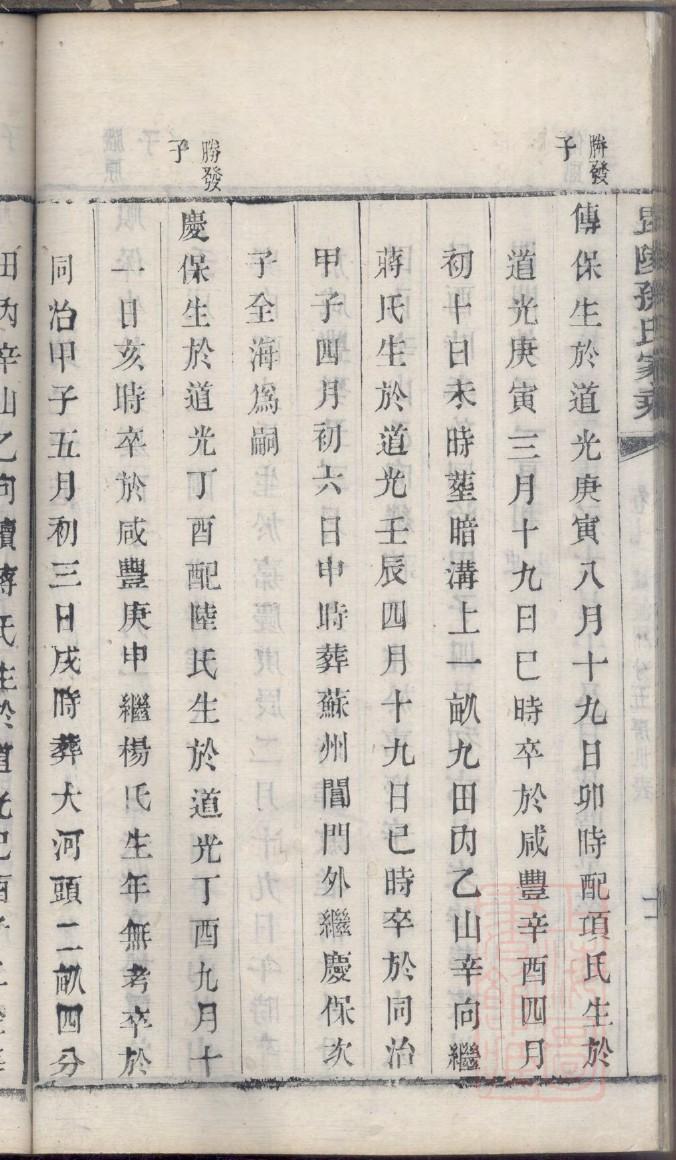 毘陵孫氏家乘
勝發
子
傳保生於道光庚寅八月十九日卯時配項氏生於
道光庚寅三月十九日巳時卒於咸豐辛酉四月
初十日未時塟暗溝上一畝九田丙乙山辛向繼
蔣氏生於道光壬辰四月十九日巳時卒於同治
甲子四月初六日申時葬蘇州閶門外繼慶保次
子全海爲嗣
勝發
子
慶保生於道光丁酉配陸氏生於道光丁酉九月十
一日亥時卒於咸豐庚申繼楊氏生年無考卒於
同治甲子五月初三日戌時葬大河頭二畝四分
田內辛山乙向續蔣氏生於道光己酉